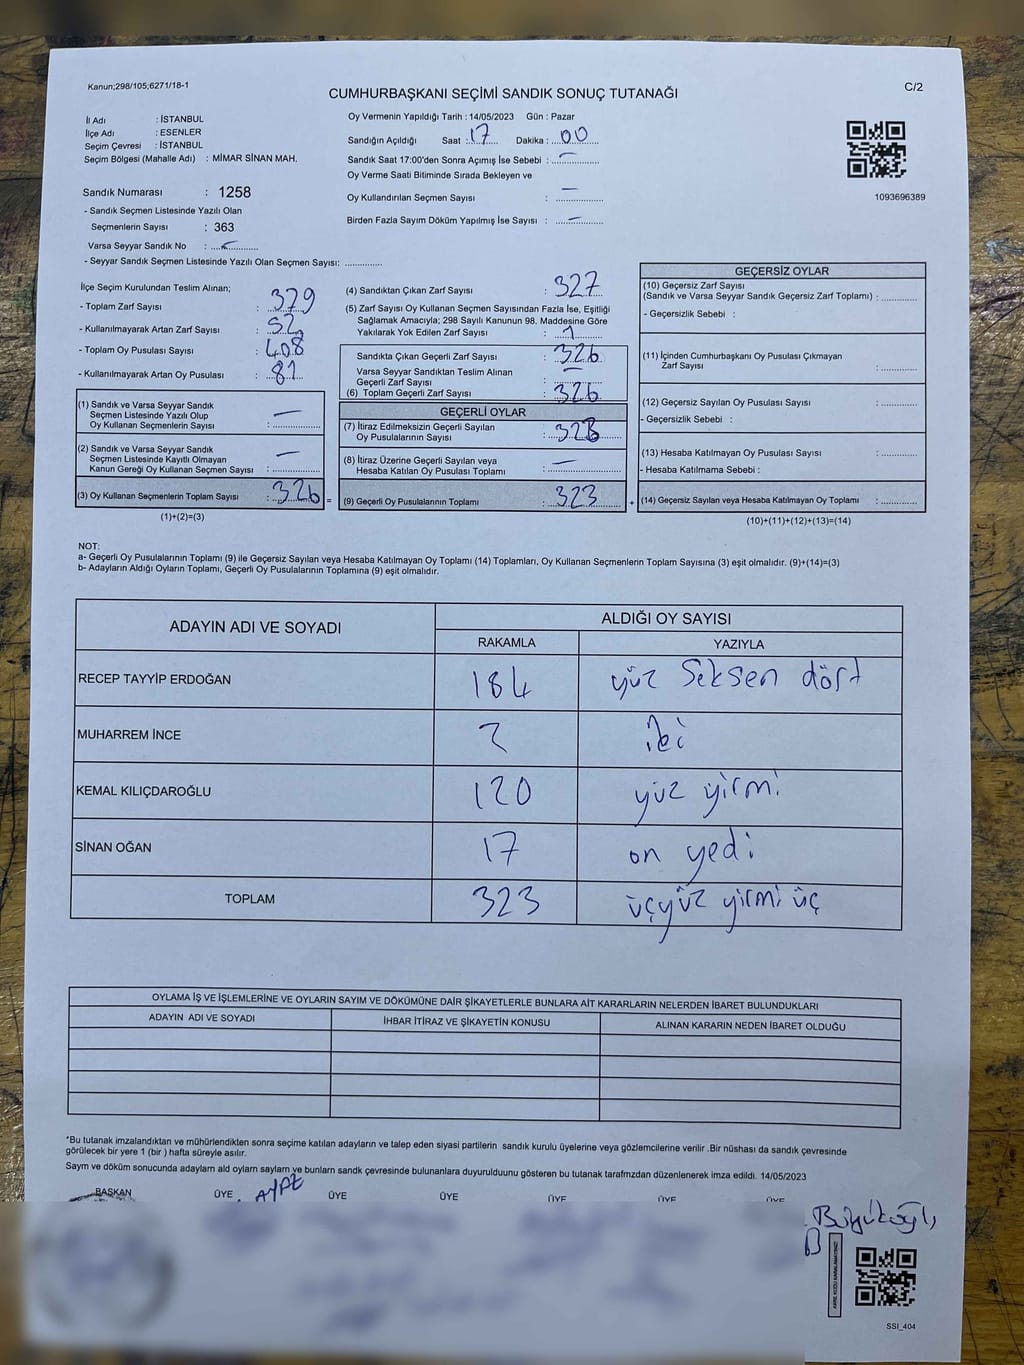 Kanun;298/105;6271/18-1
C/2
CUMHURBAŞKANI SEÇİMİ SANDIK SONUÇ TUTANAĞI
İl Adı : İSTANBUL
İlçe Adı : ESENLER
Seçim Çevresi : İSTANBUL
Seçim Bölgesi (Mahalle Adı) : MİMAR SİNAN MAH.
Oy Vermenin Yapıldığı Tarih : 14/05/2023 Gün : Pazar
Sandığın Açıldığı Saat : 17 Dakika : 00
Sandık Saat 17:00'den Sonra Açımış İse Sebebi : —
Oy Verme Saati Bitiminde Sırada Bekleyen ve
Oy Kullandırılan Seçmen Sayısı : —
Birden Fazla Sayım Döküm Yapılmış İse Sayısı : —
1093696389
Sandık Numarası : 1258
- Sandık Seçmen Listesinde Yazılı Olan
Seçmenlerin Sayısı : 363
Varsa Seyyar Sandık No :
- Seyyar Sandık Seçmen Listesinde Yazılı Olan Seçmen Sayısı:
İlçe Seçim Kurulundan Teslim Alınan;
- Toplam Zarf Sayısı : 379
- Kullanılmayarak Artan Zarf Sayısı : 52
- Toplam Oy Pusulası Sayısı : 408
- Kullanılmayarak Artan Oy Pusulası : 81
(1) Sandık ve Varsa Seyyar Sandık
Seçmen Listesinde Yazılı Olup
Oy Kullanan Seçmenlerin Sayısı : —
(2) Sandık ve Varsa Seyyar Sandık
Seçmen Listesinde Kayıtlı Olmayan
Kanun Gereği Oy Kullanan Seçmen Sayısı : —
(3) Oy Kullanan Seçmenlerin Toplam Sayısı : 326 =
(1)+(2)=(3)
(4) Sandıktan Çıkan Zarf Sayısı : 327
(5) Zarf Sayısı Oy Kullanan Seçmen Sayısından Fazla İse, Eşitliği
Sağlamak Amacıyla; 298 Sayılı Kanunun 98. Maddesine Göre
Yakılarak Yok Edilen Zarf Sayısı : 1
Sandıkta Çıkan Geçerli Zarf Sayısı : 326
Varsa Seyyar Sandıktan Teslim Alınan
Geçerli Zarf Sayısı : —
(6) Toplam Geçerli Zarf Sayısı : 326
GEÇERLİ OYLAR
(7) İtiraz Edilmeksizin Geçerli Sayılan
Oy Pusulalarının Sayısı : 323
(8) İtiraz Üzerine Geçerli Sayılan veya
Hesaba Katılan Oy Pusulası Toplamı : —
(9) Geçerli Oy Pusulalarının Toplamı : 323 +
GEÇERSİZ OYLAR
(10) Geçersiz Zarf Sayısı
(Sandık ve Varsa Seyyar Sandık Geçersiz Zarf Toplamı) :
- Geçersizlik Sebebi :
(11) İçinden Cumhurbaşkanı Oy Pusulası Çıkmayan
Zarf Sayısı :
(12) Geçersiz Sayılan Oy Pusulası Sayısı :
- Geçersizlik Sebebi :
(13) Hesaba Katılmayan Oy Pusulası Sayısı :
- Hesaba Katılmama Sebebi :
(14) Geçersiz Sayılan veya Hesaba Katılmayan Oy Toplamı :
(10)+(11)+(12)+(13)=(14)
NOT:
a- Geçerli Oy Pusulalarının Toplamı (9) ile Geçersiz Sayılan veya Hesaba Katılmayan Oy Toplamı (14) Toplamları, Oy Kullanan Seçmenlerin Toplam Sayısına (3) eşit olmalıdır. (9)+(14)=(3)
b- Adayların Aldığı Oyların Toplamı, Geçerli Oy Pusulalarının Toplamına (9) eşit olmalıdır.
ADAYIN ADI VE SOYADI
ALDIĞI OY SAYISI
RAKAMLA YAZIYLA
RECEP TAYYİP ERDOĞAN 184 yüz seksen dört
MUHARREM İNCE 2 iki
KEMAL KILIÇDAROĞLU 120 yüz yirmi
SİNAN OĞAN 17 on yedi
TOPLAM 323 üçyüz yirmi üç
OYLAMA İŞ VE İŞLEMLERİNE VE OYLARIN SAYIM VE DÖKÜMÜNE DAİR ŞİKAYETLERLE BUNLARA AİT KARARLARIN NELERDEN İBARET BULUNDUKLARI
ADAYIN ADI VE SOYADI İHBAR İTİRAZ VE ŞİKAYETİN KONUSU ALINAN KARARIN NEDEN İBARET OLDUĞU
*Bu tutanak imzalandıktan ve mühürlendikten sonra seçime katılan adayların ve talep eden siyasi partilerin sandık kurulu üyelerine veya gözlemcilerine verilir .Bir nüshası da sandık çevresinde
görülecek bir yere 1 (bir ) hafta süreyle asılır.
Saym ve döküm sonucunda adaylarn ald oylarn saylarn ve bunlarn sandk çevresinde bulunanlara duyurulduunu gösteren bu tutanak tarafmzdan düzenlenerek imza edildi. 14/05/2023
BAŞKAN ÜYE ÜYE ÜYE ÜYE ÜYE ÜYE
SSI_404